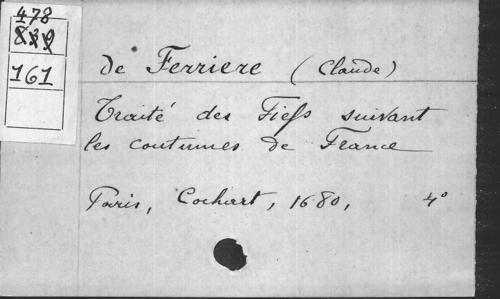 478
839
161
de Ferriere (Claude)
Traité des Fiefs suivant
les coutumes de France
Paris, Cochart, 1680, 4°